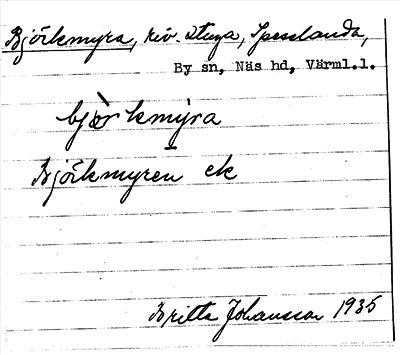 Björkmyra, riv. stuga, Spesslanda,
By sn, Näs hd, Värml.l.
bjö̀rkmýra
Björkmyren ek
Britta Johansson 1935